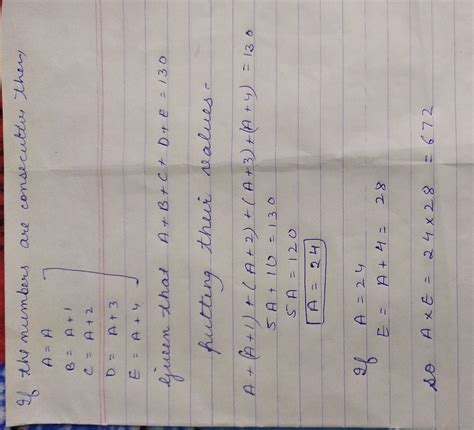 If the numbers are consecutive then,
A = A
B = A+1
C = A+2
D = A+3
E = A+4
Given that A+B+C+D+E = 130
putting their values-
A+(A+1)+(A+2)+(A+3)+(A+4) = 130
5A+10 = 130
5A = 120
A = 24
If A = 24
E = A+4 = 28
so A×E = 24×28 = 672